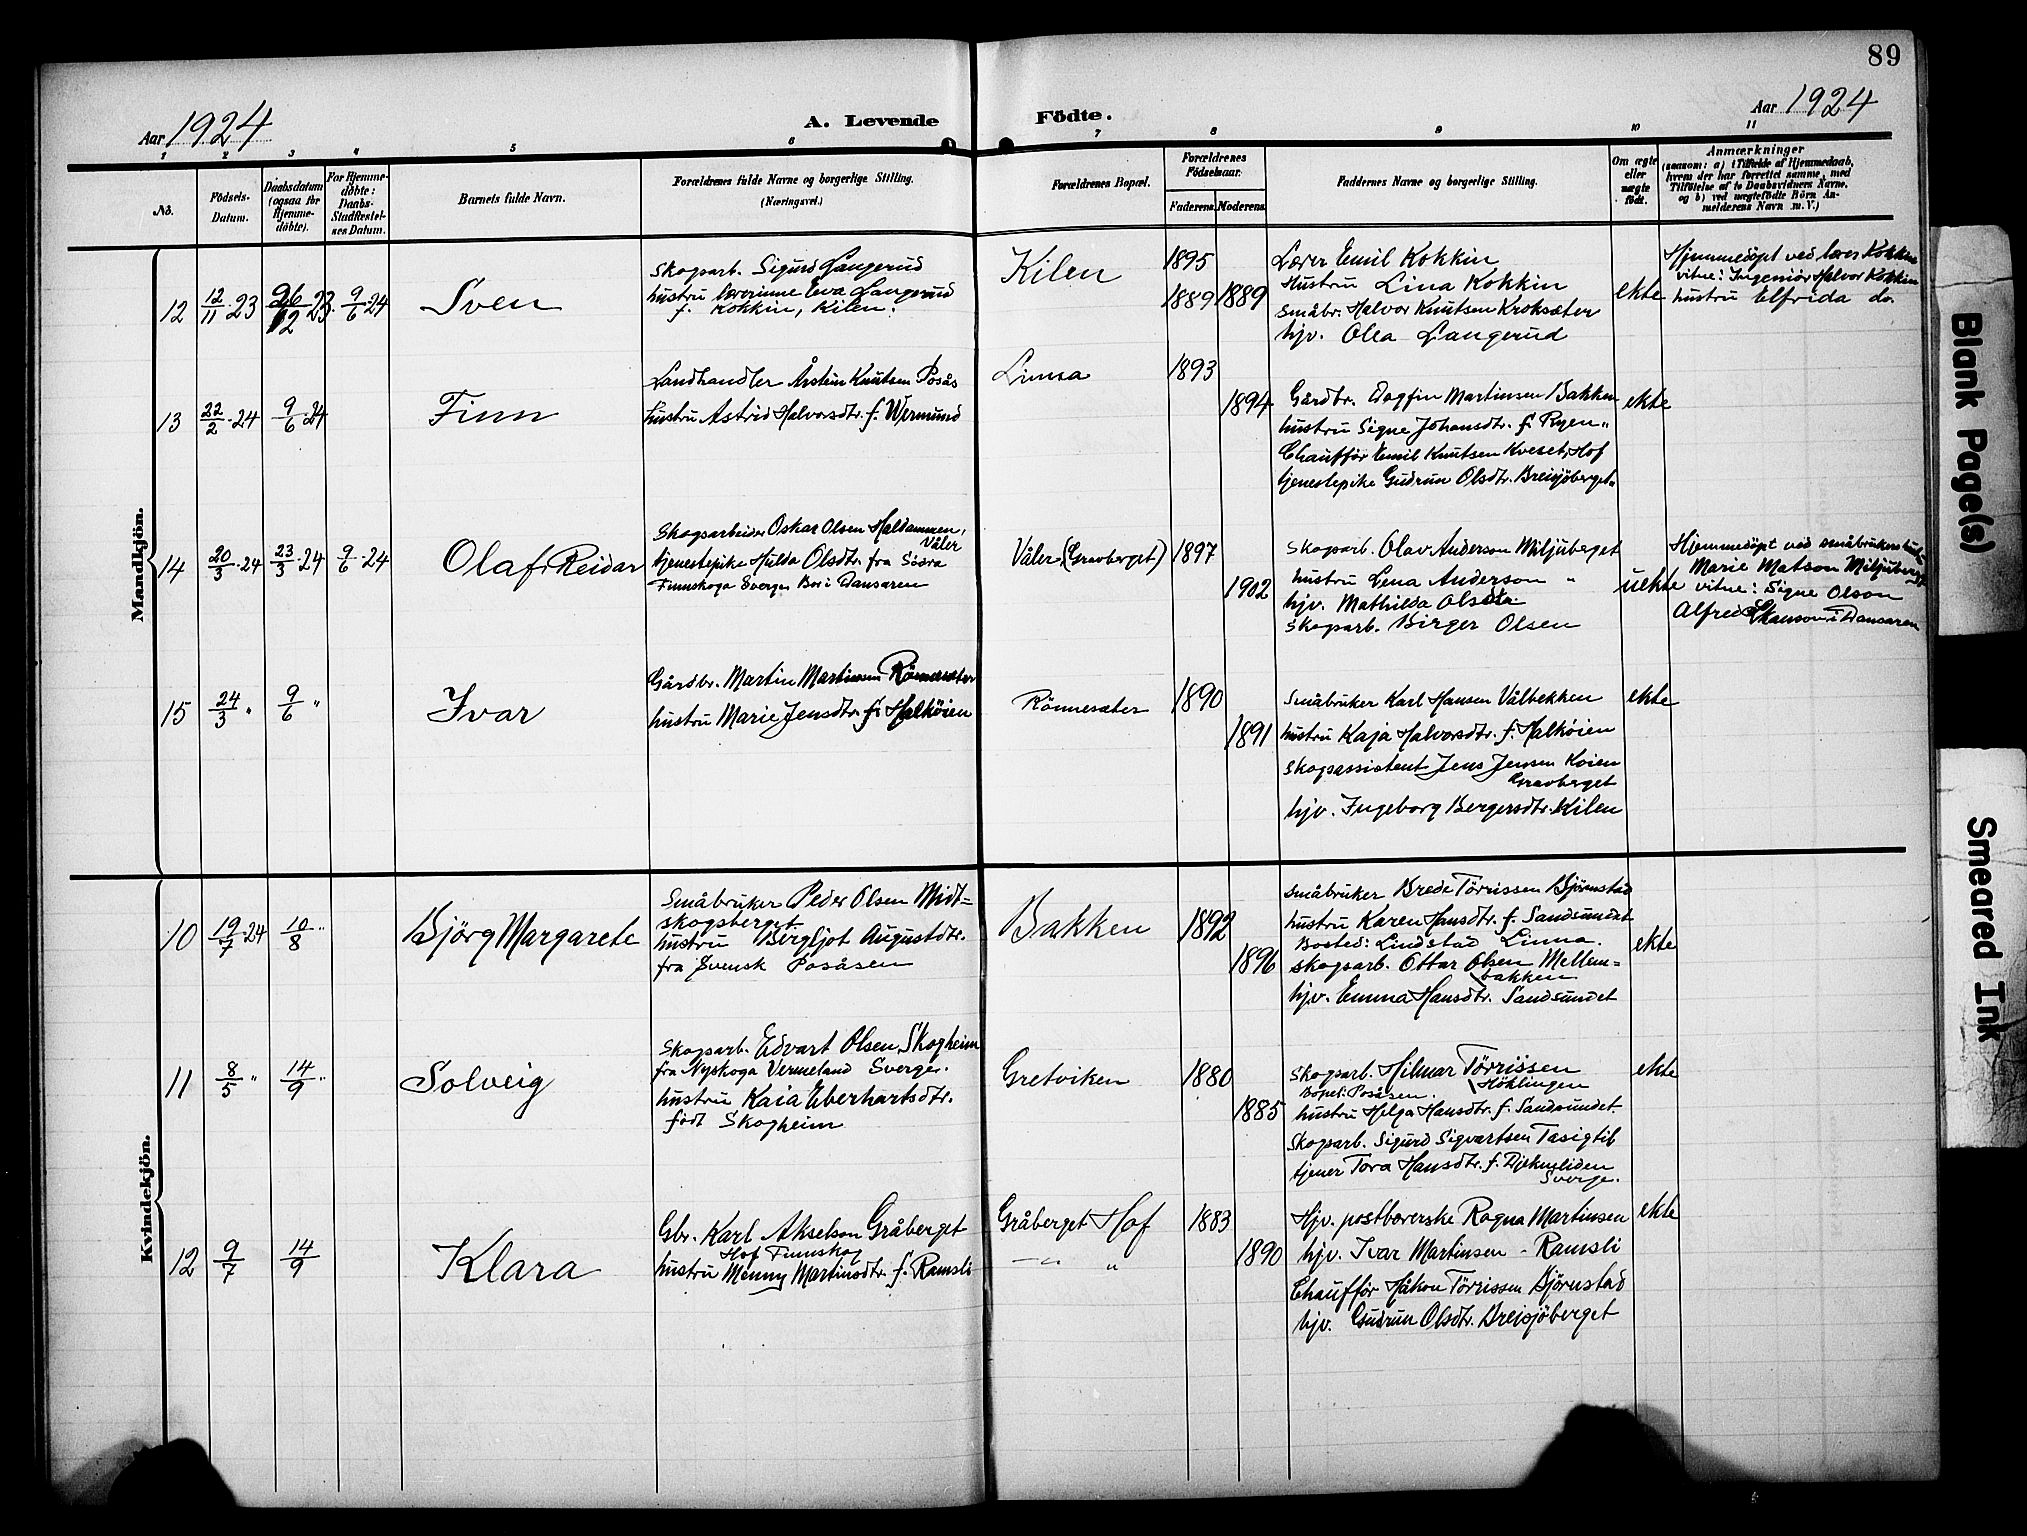 89
Aar 1924
A. Levende
Födte.
Aar 1924
1 2 3 4 5 6 7 8 9 10 11
No.
Födsels-
Datum.
Daabsdatum
(ogsaa for
Hjemme-
döbte).
For Hjemme-
döbte:
Daabs-
Stadfæstel-
ses Datum.
Barnets fulde Navn.
Forældrenes fulde Navne og borgerlige Stilling.
(Næringsvei.)
Forældrenes Bopæl.
Forældrenes
Födselsaar.
Faderens. Moderens.
Faddernes Navne og borgerlige Stilling.
Om ægte
eller
uægte
födt.
Anmærkninger
(saasom: a) i Tilfælde af Hjemmedaab,
hvem der har forrettet samme, med
Tilföielse af to Daabsvidners Navne,
og b) ved uægtefödte Börn An-
melderens Navn m. V.)
Mandkjön.
12 12/11 23 26/12 23 9/6 24 Sven
Skogsarb. Sigurd Langerud
hustru lærerinne Eva Langerud
f. Kokkin, Kilen.
Kilen 1895
1889 1889
Lærer Emil Kokkin
Hustru Lina Kokkin
Småbr. Halvor Knutsen Kroksæter
hjv. Olea Langerud
ekte
Hjemmedöpt ved lærer Kokkin
vitne: Ingeniör Halvor Kokkin
hustru Elfrida do.
13 22/2 24 9/6 24 Finn
Landhandler Årstein Knutsen Posås
hustru Astrid Halvorsdtr. f. Wermund
Linna 1893
1894
Gårdbr. Dagfin Martinsen Bakken
hustru Signe Johansdtr. f. Ryen "
Chaufför Emil Knutsen Kveset, Hof
tjenestepike Gudrun Olsdtr. Breisjöberget "
ekte
14 20/3 24 23/3 24 9/6 24 Olaf Reidar
Skogsarbeider Oskar Olsen Haldammen,
Våler
tjenestepike Hulda Olsdtr. fra Södra
Finnskoga Sverge. Bor i Dansaren
Våler (Gravberget) 1897
1902
Skogsarb. Olav Anderson Miljuberget
hustru Lena Anderson "
hjv. Mathilda Olsdtr.
Skogsarb. Birger Olsen
uekte
Hjemmedöpt ved småbrukerhustru
Marie Matson Miljuberget
vitne: Signe Olson
Alfred i Dansaren
15 24/3 " 9/6 " Ivar
Gårdbr. Martin Martinsen Rönnesæter
hustru Marie Jensdtr. f. Halköien
Rönnesæter 1890
1891
Småbruker Karl Hansen Vålbekken
hustru Kaja Halvorsdtr. f. Halköien
Skogsassistent Jens Jensen Koien
Gravberget
hjv. Ingeborg Bergersdtr. Kilen
ekte
Kvindekjön.
10 19/7 24 10/8 " Björg Margarete
Småbruker Peder Olsen Midt=
skogsberget
hustru Bergljot Augustdtr.
fra Svensk Posåsen
Bakken 1892
1896
Småbruker Brede Törrissen Björnstad
hustru Karen Hansdtr. f. Sandsundet
Bosted: Lindstad Linna.
skogsarb. Ottar Olsen Mellem=
bakken
hjv. Emma Hansdtr. Sandsundet
ekte
11 8/5 " 14/9 " Solveig
Skogsarb. Edvart Olsen Skogheim
fra Nyskoga Vermeland Sverge.
hustru Kaia Eberhartsdtr.
födt Skogheim
Gretviken 1880
1885
Skogsarb. Hilmar Törrissen
Höklingen
Bopel: Posåsen.
hustru Helga Hansdtr. f. Sandsundet
Skogsarb. Sigurd Sigvartsen Tasigtil
tjener Tora Hansdtr. f. Djekneliden
Sverge.
ekte
12 9/7 14/9 Klara
Gbr. Karl Akselson Gråberget
Hof Finnskog
hustru Menny Martinsdtr. f. Ramsli
Gråberget Hof 1883
— " — " 1890
Hjv. postbærerske Ragna Martinsen
hjv. Ivar Martinsen - Ramsli
Chaufför Håkon Törrissen Björnstad
hjv. Gudrun Olsdtr. Breisjöberget
ekte
Blank Page(s)
Smeared Ink